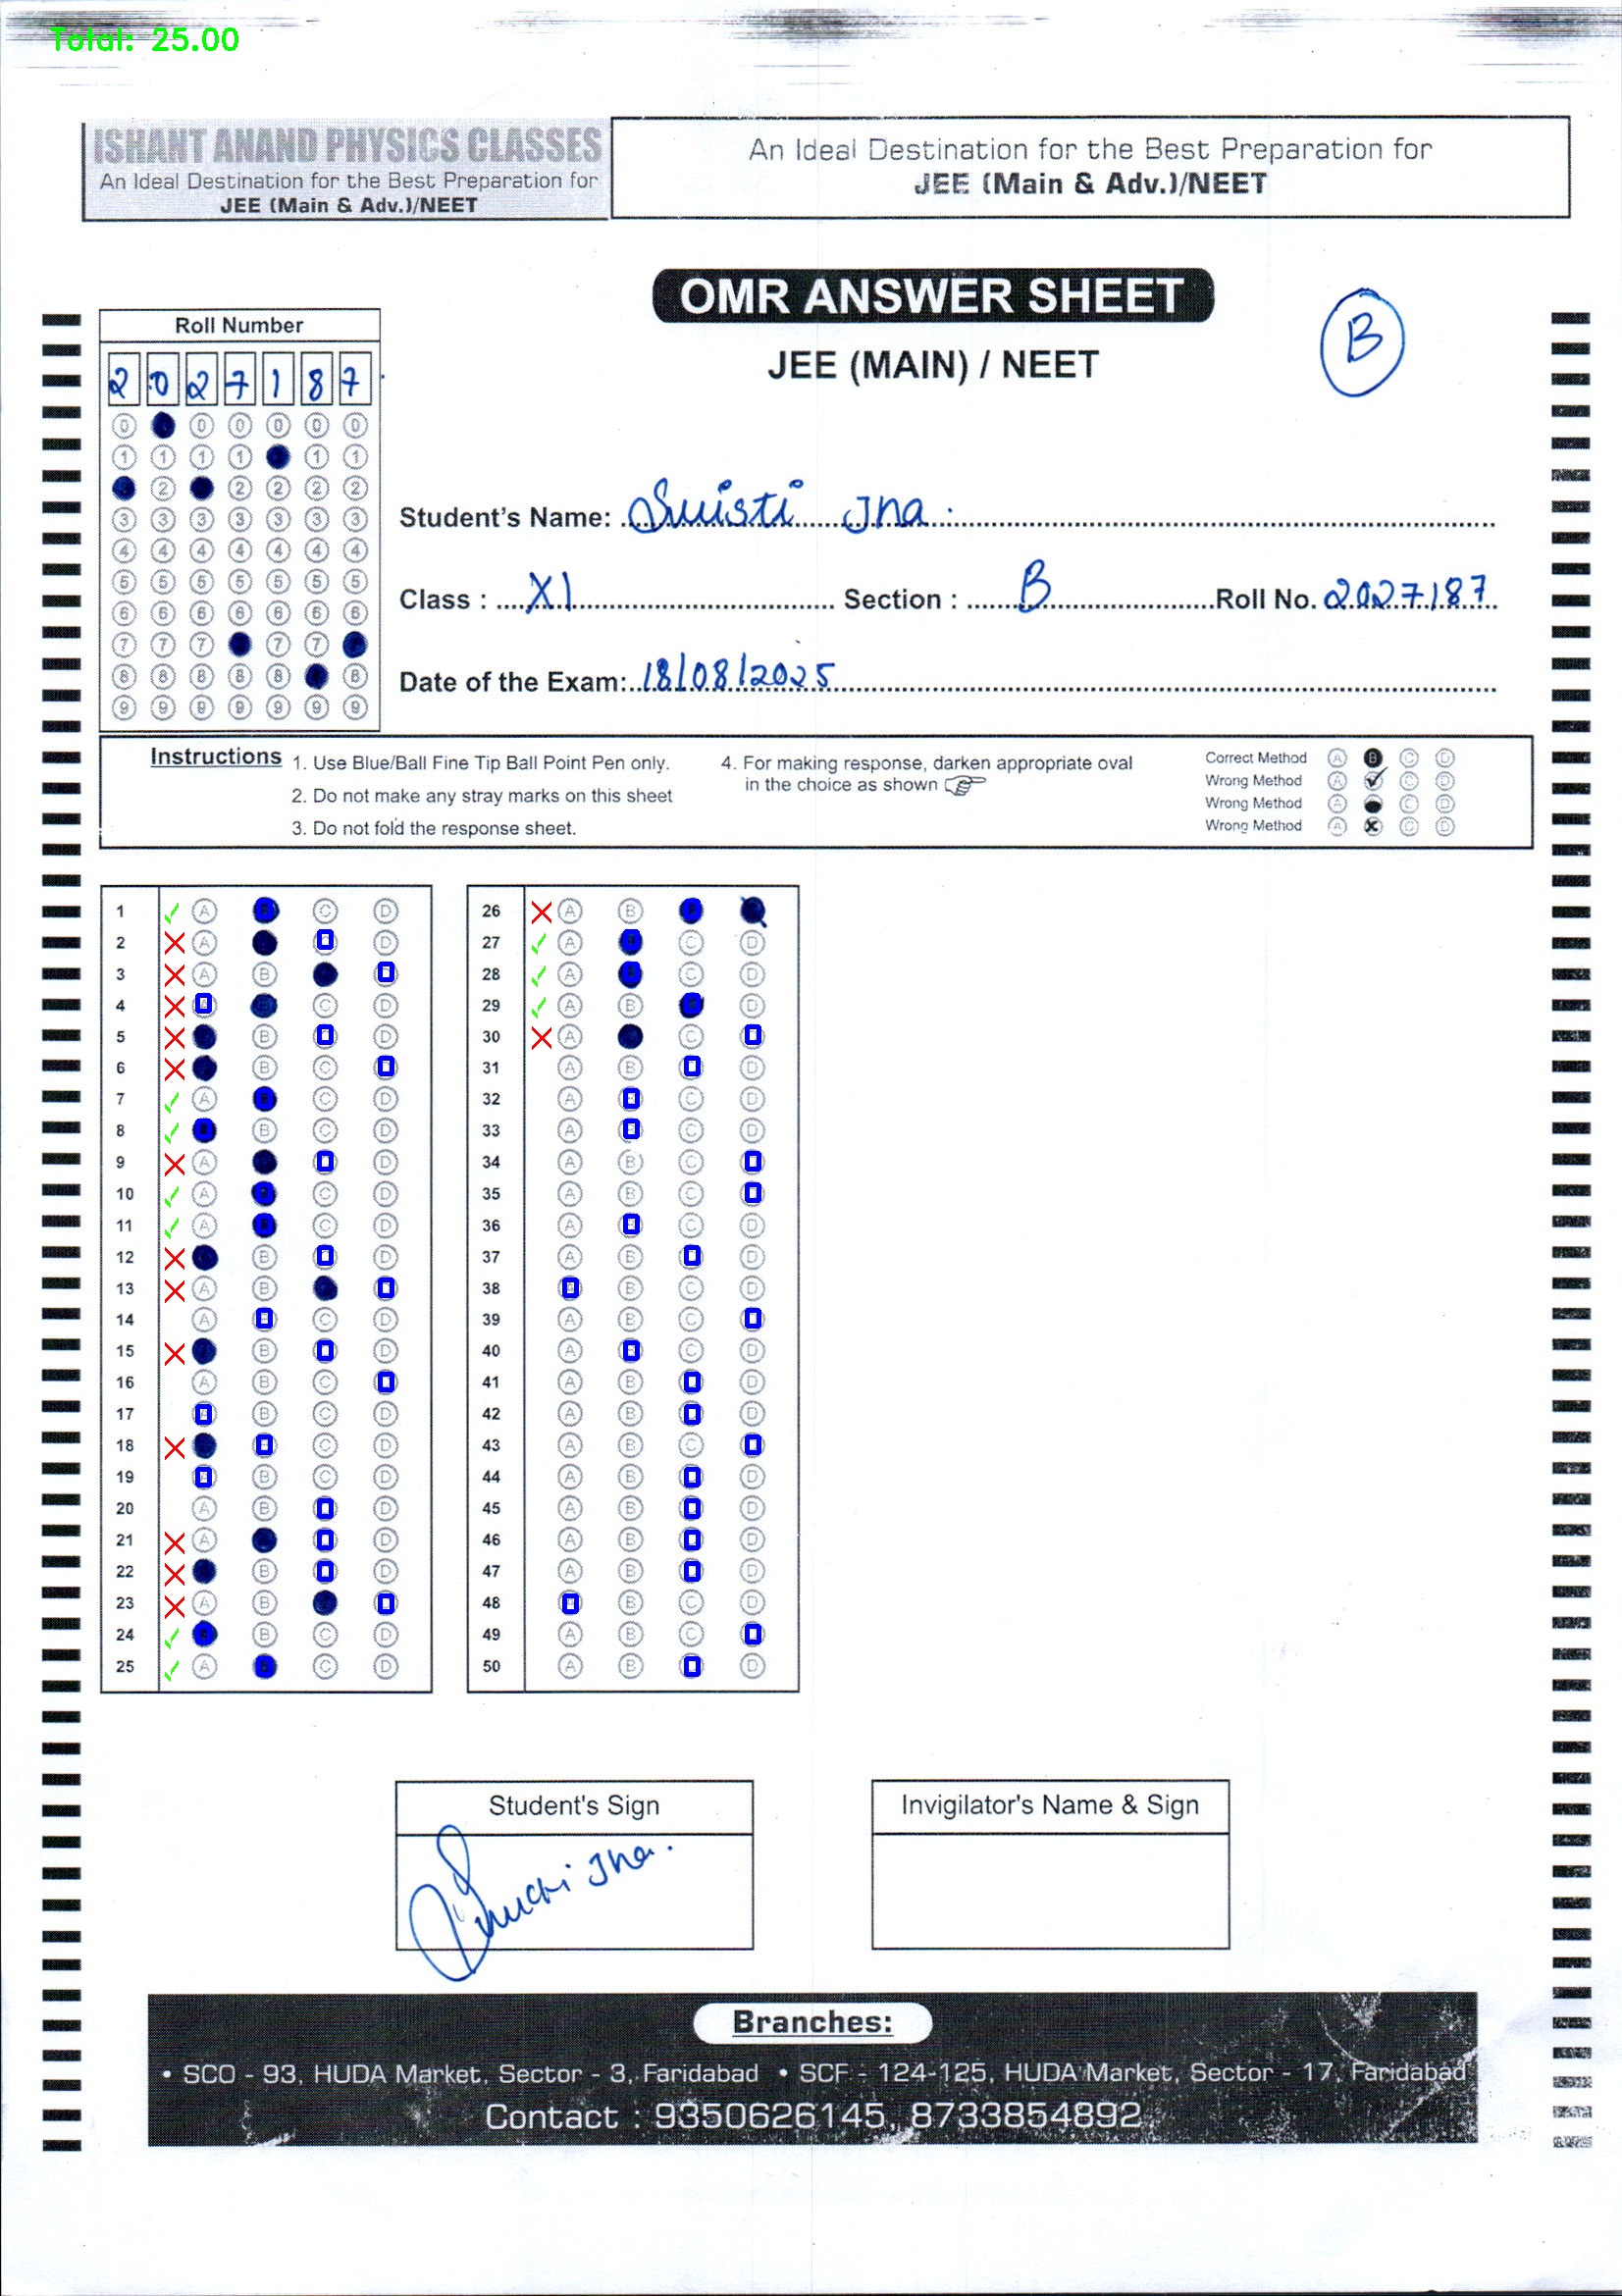 Total: 25.00
ISHANT ANAND PHYSICS CLASSES
An Ideal Destination for the Best Preparation for
JEE (Main & Adv.)/NEET
An Ideal Destination for the Best Preparation for
JEE (Main & Adv.)/NEET
OMR ANSWER SHEET
JEE (MAIN) / NEET
B
Roll Number
2 0 2 7 1 8 7
0 0 0 0 0 0
1 1 1 1 1 1
2 2 2 2 2
3 3 3 3 3 3 3
4 4 4 4 4 4 4
5 5 5 5 5 5 5
6 6 6 6 6 6 6
7 7 7 7 7
8 8 8 8 8 8
9 9 9 9 9 9 9
Student's Name: Jna
Class : XI Section : B Roll No. 2027187
Date of the Exam: 18/08/2025
Instructions
1. Use Blue/Ball Fine Tip Ball Point Pen only.
2. Do not make any stray marks on this sheet
3. Do not fold the response sheet.
4. For making response, darken appropriate oval
in the choice as shown
Correct Method A B C D
Wrong Method A C D
Wrong Method A C D
Wrong Method A C D
1 A C D
2 A D
3 A B
4 C D
5 B D
6 B C
7 A C D
8 B C D
9 A D
10 A C D
11 A C D
12 B D
13 A B
14 A C D
15 B D
16 A B C
17 B C D
18 C D
19 B C D
20 A B D
21 A D
22 B D
23 A B
24 B C D
25 A C D
26 A B
27 A C D
28 A C D
29 A B D
30 A C
31 A B D
32 A C D
33 A C D
34 A B C
35 A B C
36 A C D
37 A B D
38 B C D
39 A B C
40 A C D
41 A B D
42 A B D
43 A B C
44 A B D
45 A B D
46 A B D
47 A B D
48 B C D
49 A B C
50 A B D
Student's Sign
Jna.
Invigilator's Name & Sign
Branches:
• SCO - 93, HUDA Market, Sector - 3, Faridabad • SCF - 124-125, HUDA Market, Sector - 17, Faridabad
Contact : 9350626145, 8733854892